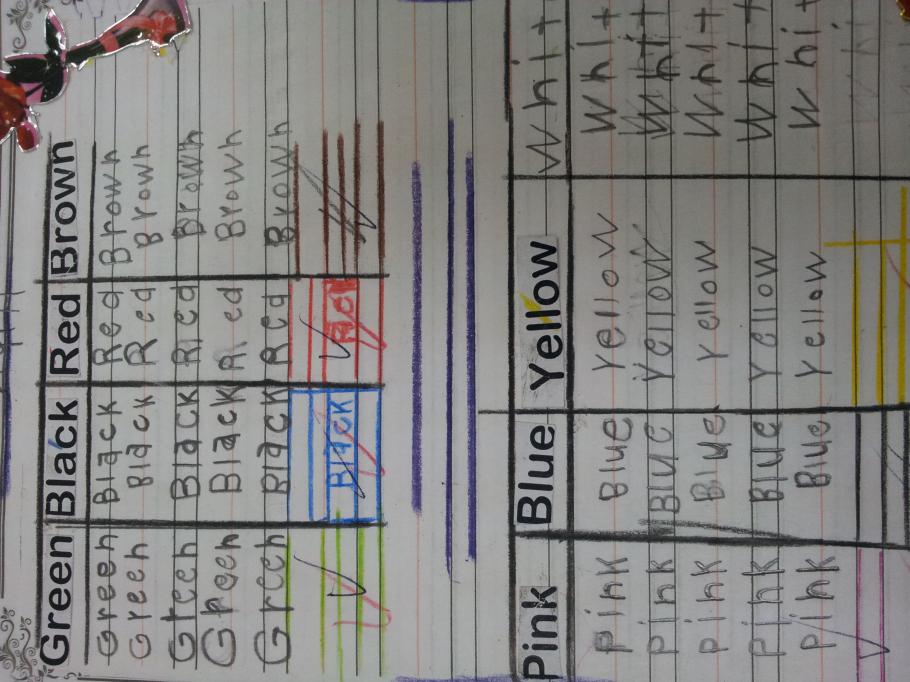 Green Black Red Brown
Green Black Red Brown
Green Black Red Brown
Green Black Red Brown
Green Black Red Brown
Green Black Red Brown
Black Red
Pink Blue Yellow Whit
Pink Blue Yellow Whit
Pink Blue Yellow Whit
Pink Blue Yellow Whit
Pink Blue Yellow Whit
Pink Blue Yellow Whi